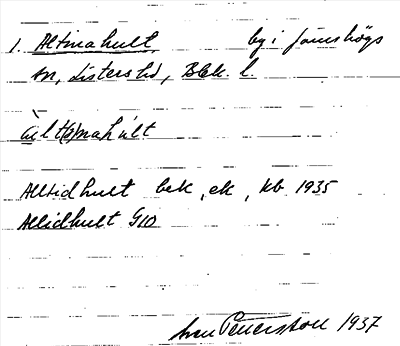 1. Altinahult, by i Jämshögs
sn, Listers hd, Blek. l.
àlt(ə)nahùlt
Alltidhult bek, ek, kb 1935
Allidhult G10
Petersson 1937